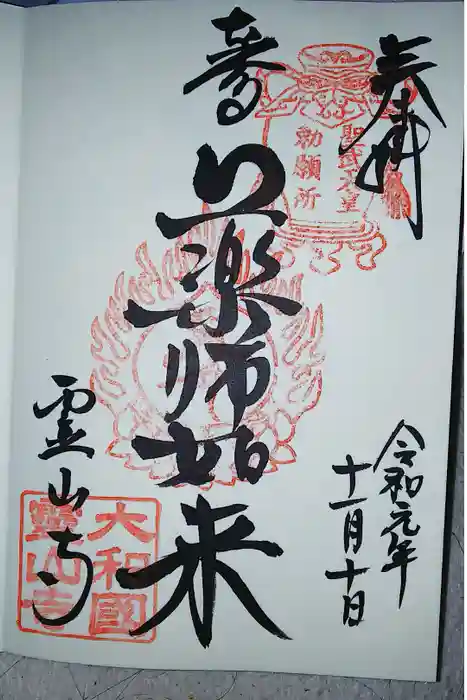 奉拝
聖武天皇
勅願所
薬師如来
令和元年
十一月十日
霊山寺
大和國
靈山寺